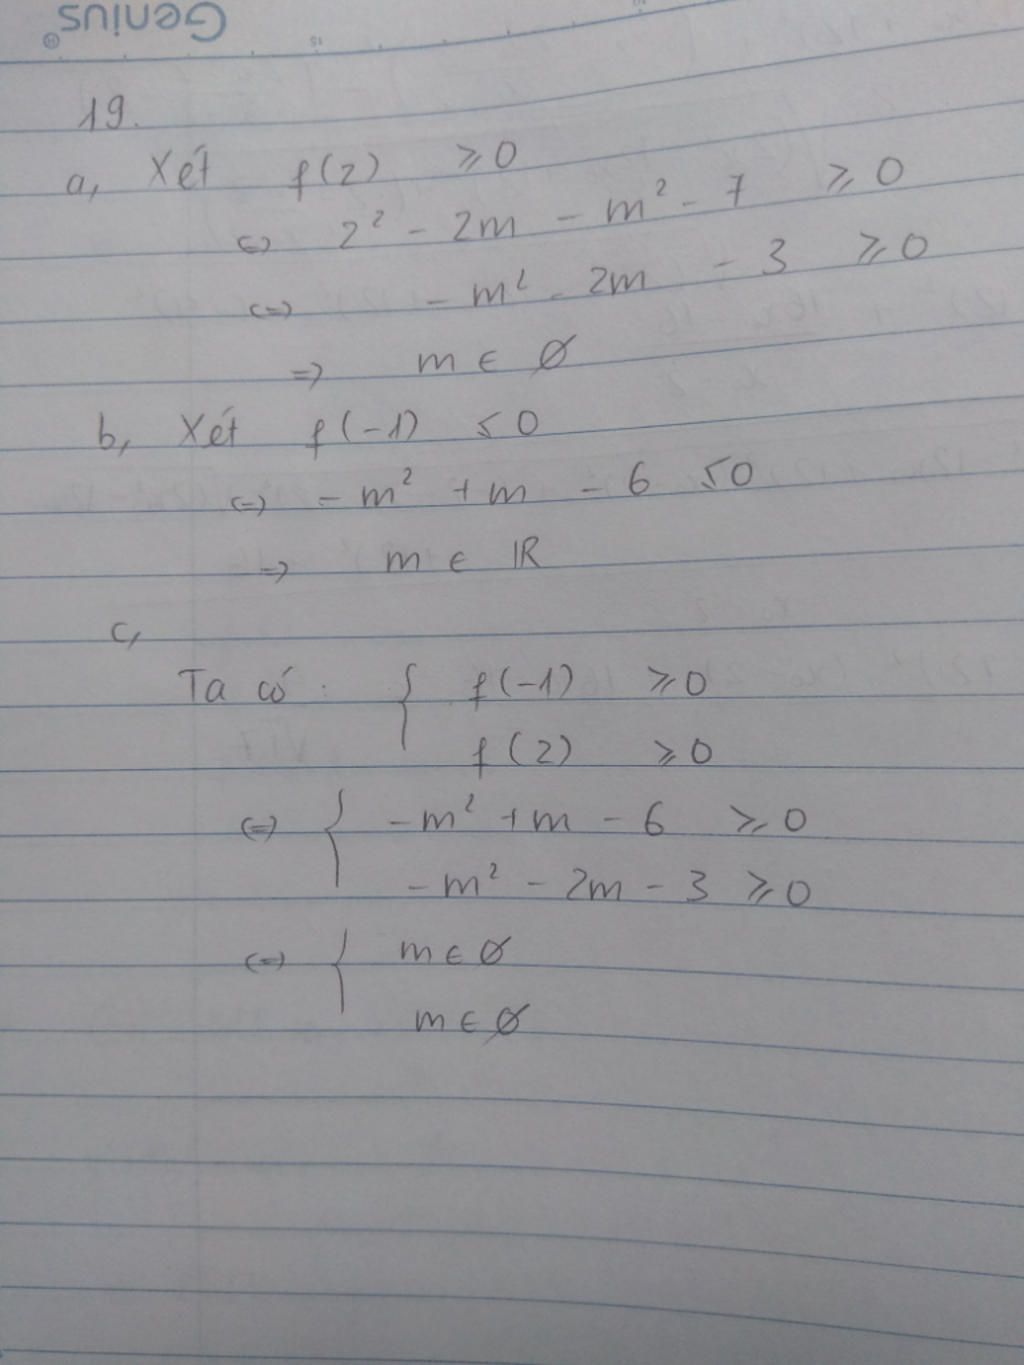 Genius
19.
a, Xét f(2) ⩾ 0
(=) 2² - 2m - m² - 7 ⩾ 0
(=) - m² - 2m - 3 ⩾ 0
=) m ∈ ∅
b, Xét f(-1) ≤ 0
(=) - m² + m - 6 ≤ 0
=) m ∈ IR
c,
Ta có : { f(-1) ⩾ 0
f(2) ⩾ 0
(=) { - m² + m - 6 ⩾ 0
- m² - 2m - 3 ⩾ 0
(=) { m ∈ ∅
m ∈ ∅